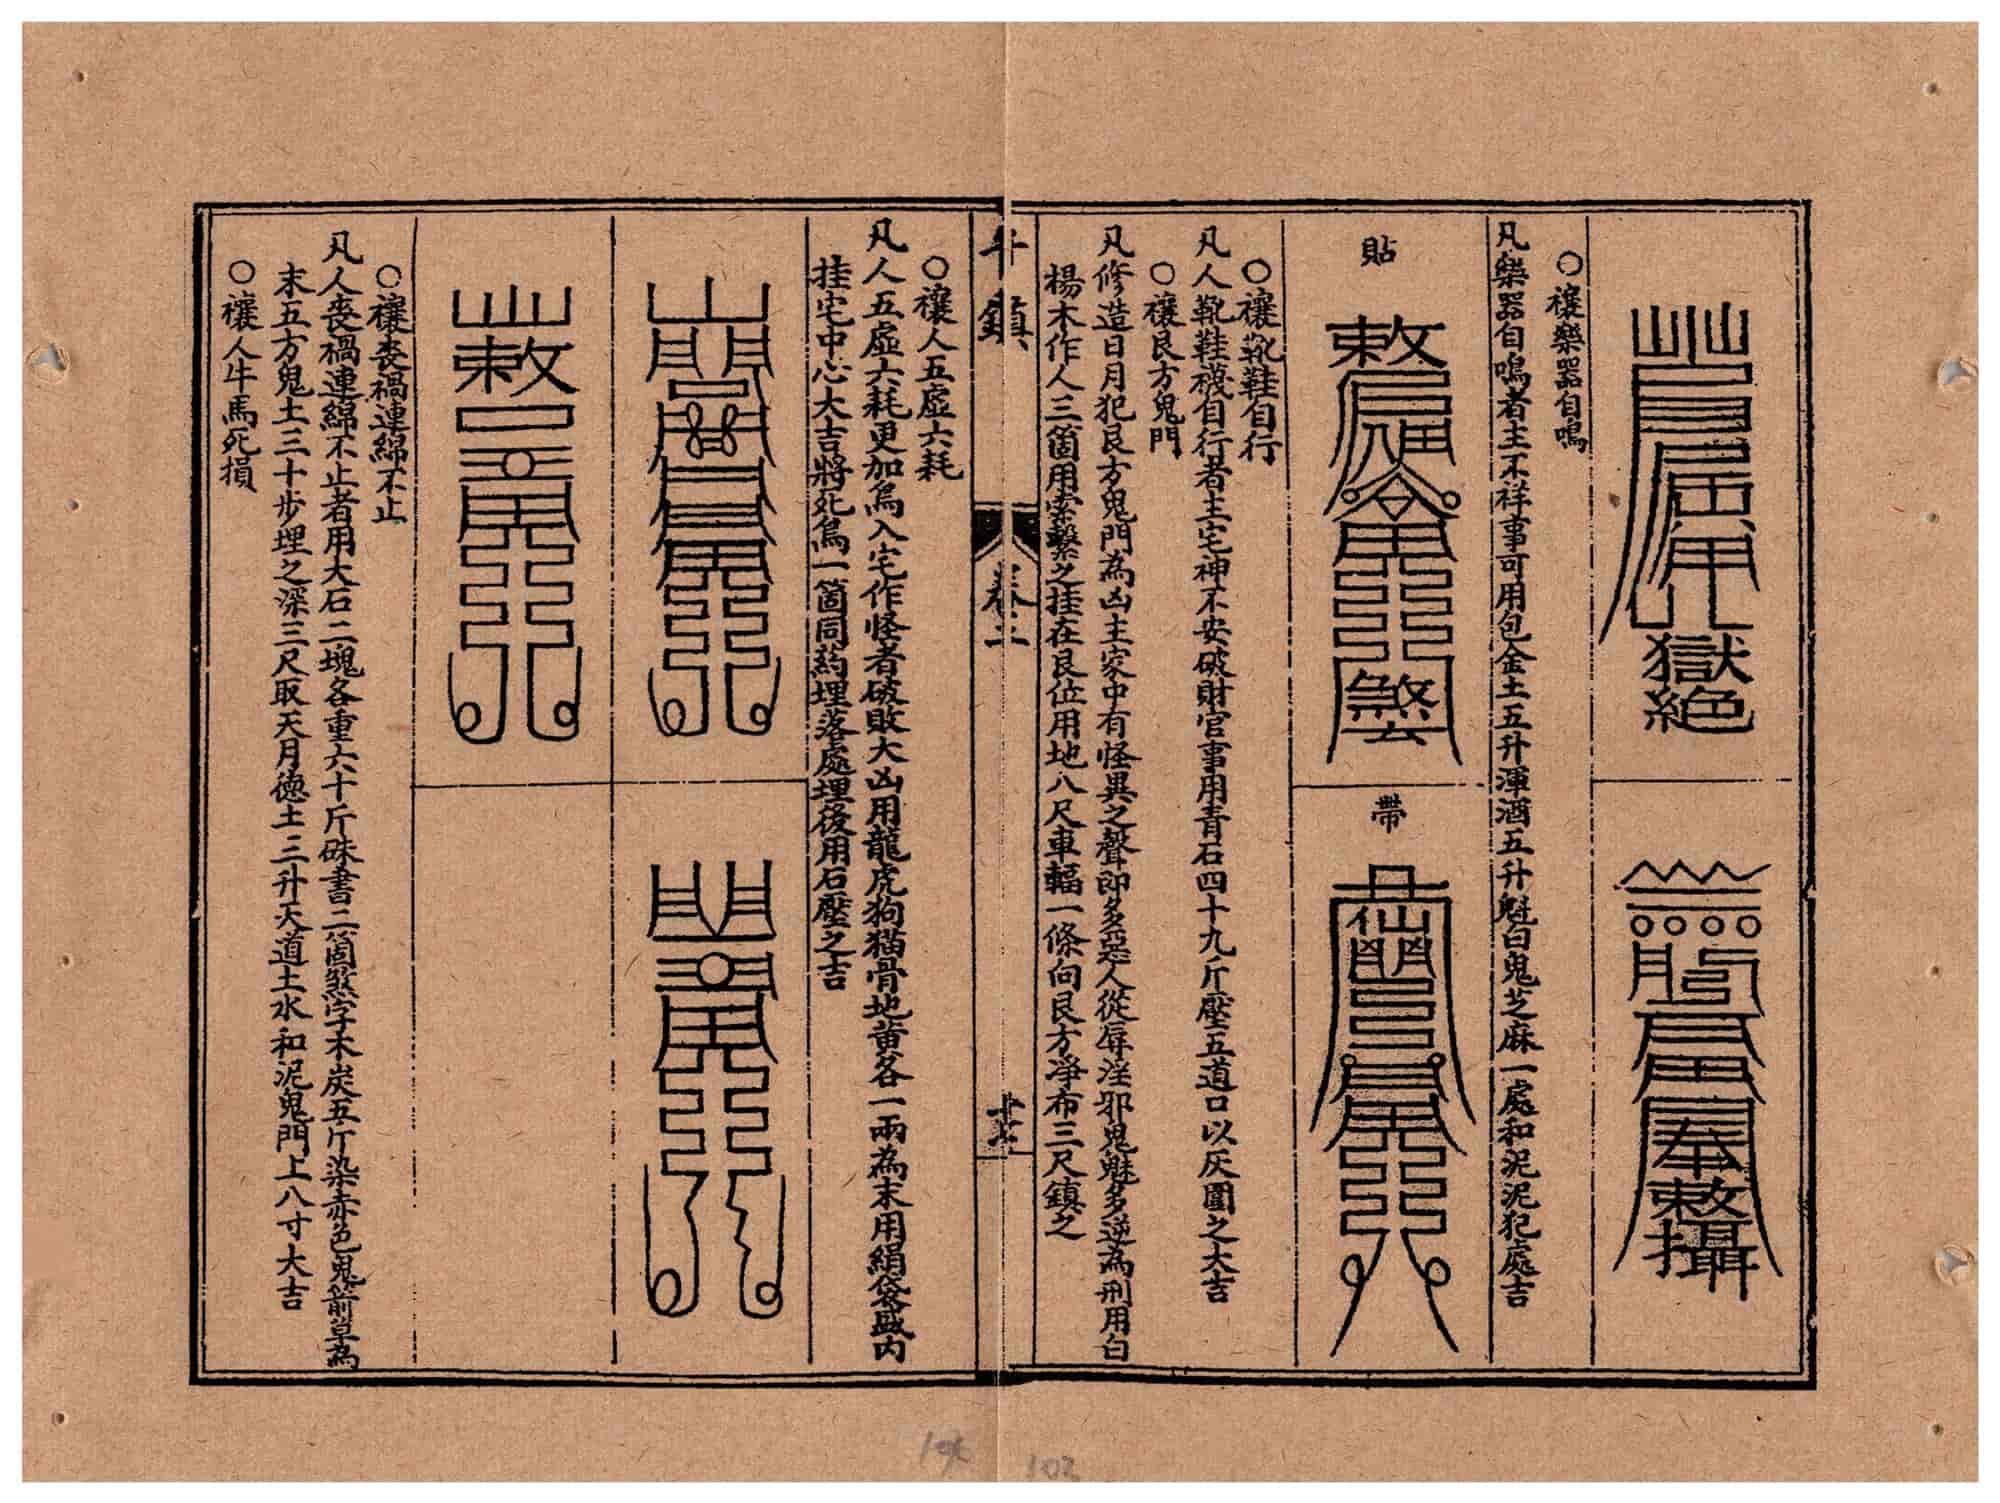 獄絕
奉敕攝
○禳樂器自鳴
凡樂器自鳴者主不祥事可用包金土五升渾酒五升魁白鬼芝麻一處和泥泥犯處吉
貼
敕
煞
帶
○禳靴鞋自行
凡人靴鞋襪自行者主宅神不安破財官事用青石四十九斤壓五道口以灰圍之大吉
○禳艮方鬼門
凡修造日月犯艮方鬼門為凶主家中有怪異之聲即多惡人從辱淫邪鬼魅多逆為刑用白
楊木作人三箇用索繫之挂在艮位用地八尺車輻一條向艮方凈布三尺鎮之
鎮
卷二
○禳人五虛六耗
凡人五虛六耗更加鳥入宅作怪者破敗大凶用龍虎狗猫骨地黃各一兩為末用絹袋盛內
挂宅中心大吉將死鳥一箇同葯埋落處埋後用石壓之吉
敕
○禳喪禍連綿不止
凡人喪禍連綿不止者用大石二塊各重六十斤硃書二箇煞字木炭五斤染赤色鬼箭草為
末五方鬼土三十步埋之深三尺取天月德土三升天道土水和泥鬼門上八寸大吉
○禳人牛馬死損
102